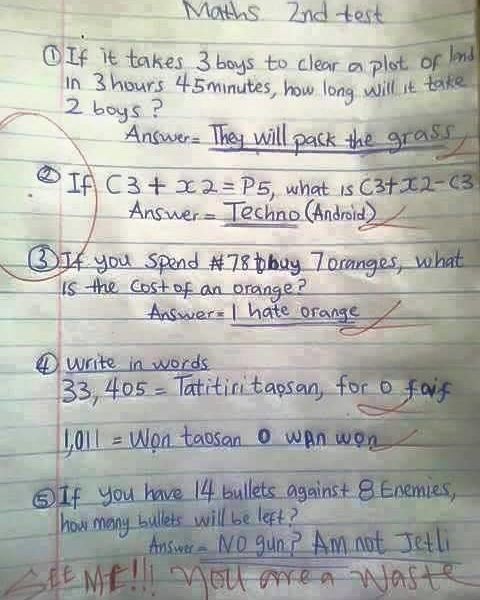 Maths 2nd test
① If it takes 3 boys to clear a plot of land
in 3 hours 45 minutes, how long will it take
2 boys ?
Answer = They will pack the grass
② If C3 + x2 = P5, what is C3+x2-C3
Answer = Techno (Android)
③ If you spend ₦78 to buy 7 oranges, what
is the cost of an orange?
Answer = I hate orange
④ Write in words
33, 405 = Tatitiri taosan, for o faif
1,011 = Won taosan O wan won
⑤ If you have 14 bullets against 8 Enemies,
how many bullets will be left?
Answer = NO gun? Am not Jetli
SEE ME!!! You are a Waste